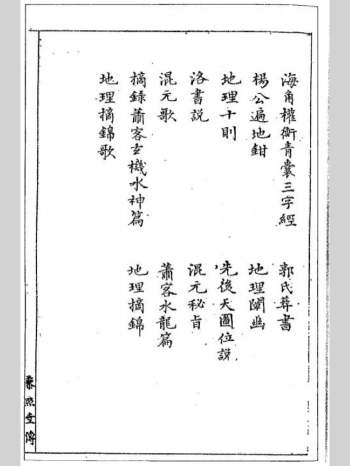 海角權衡青囊三字經 郭氏葬書
楊公遍地鉗 地理闡幽
地理十則 先後天圖位說
洛書説 混元秘旨
混元歌 蕭客水龍篇
摘錄蕭客玄機水神篇 地理摘錦
地理摘錦歌